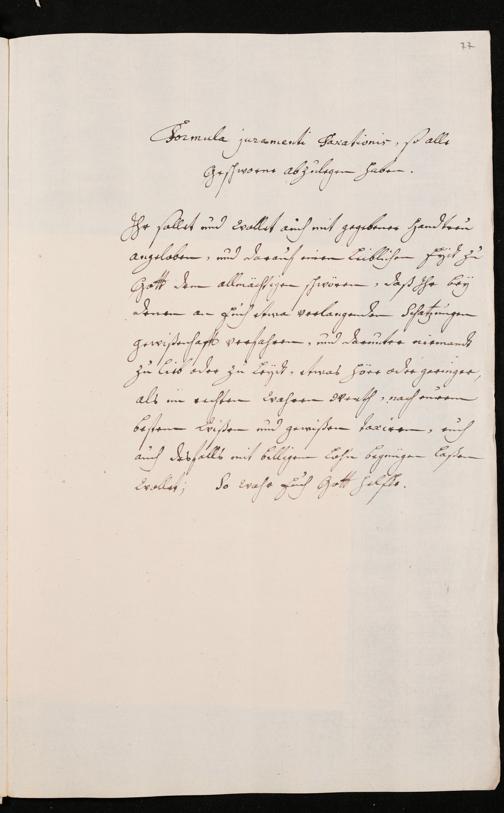 77
Formula juramenti Taxationis, so alle
Geschworne abzulegen haben.
Ihr sollet und wollet auch mit gegebener Handtreu
angeloben, und darauf einen leiblichen Eydt zu
Gott dem allmächtigen schwören, daß Ihr bey
denen an Euch etwa verlangenden Schatzungen
gewißenhafft verfahren, und darunter niemandt
zu lieb oder zu leydt, etwas höer oder geringer,
als im rechten wahren werth, nach eurem
besten wißen und gewißen taxiren, euch
auch desfalls mit billigem Lohn begnügen laßen
wollet; So wahr Euch Gott helffe.